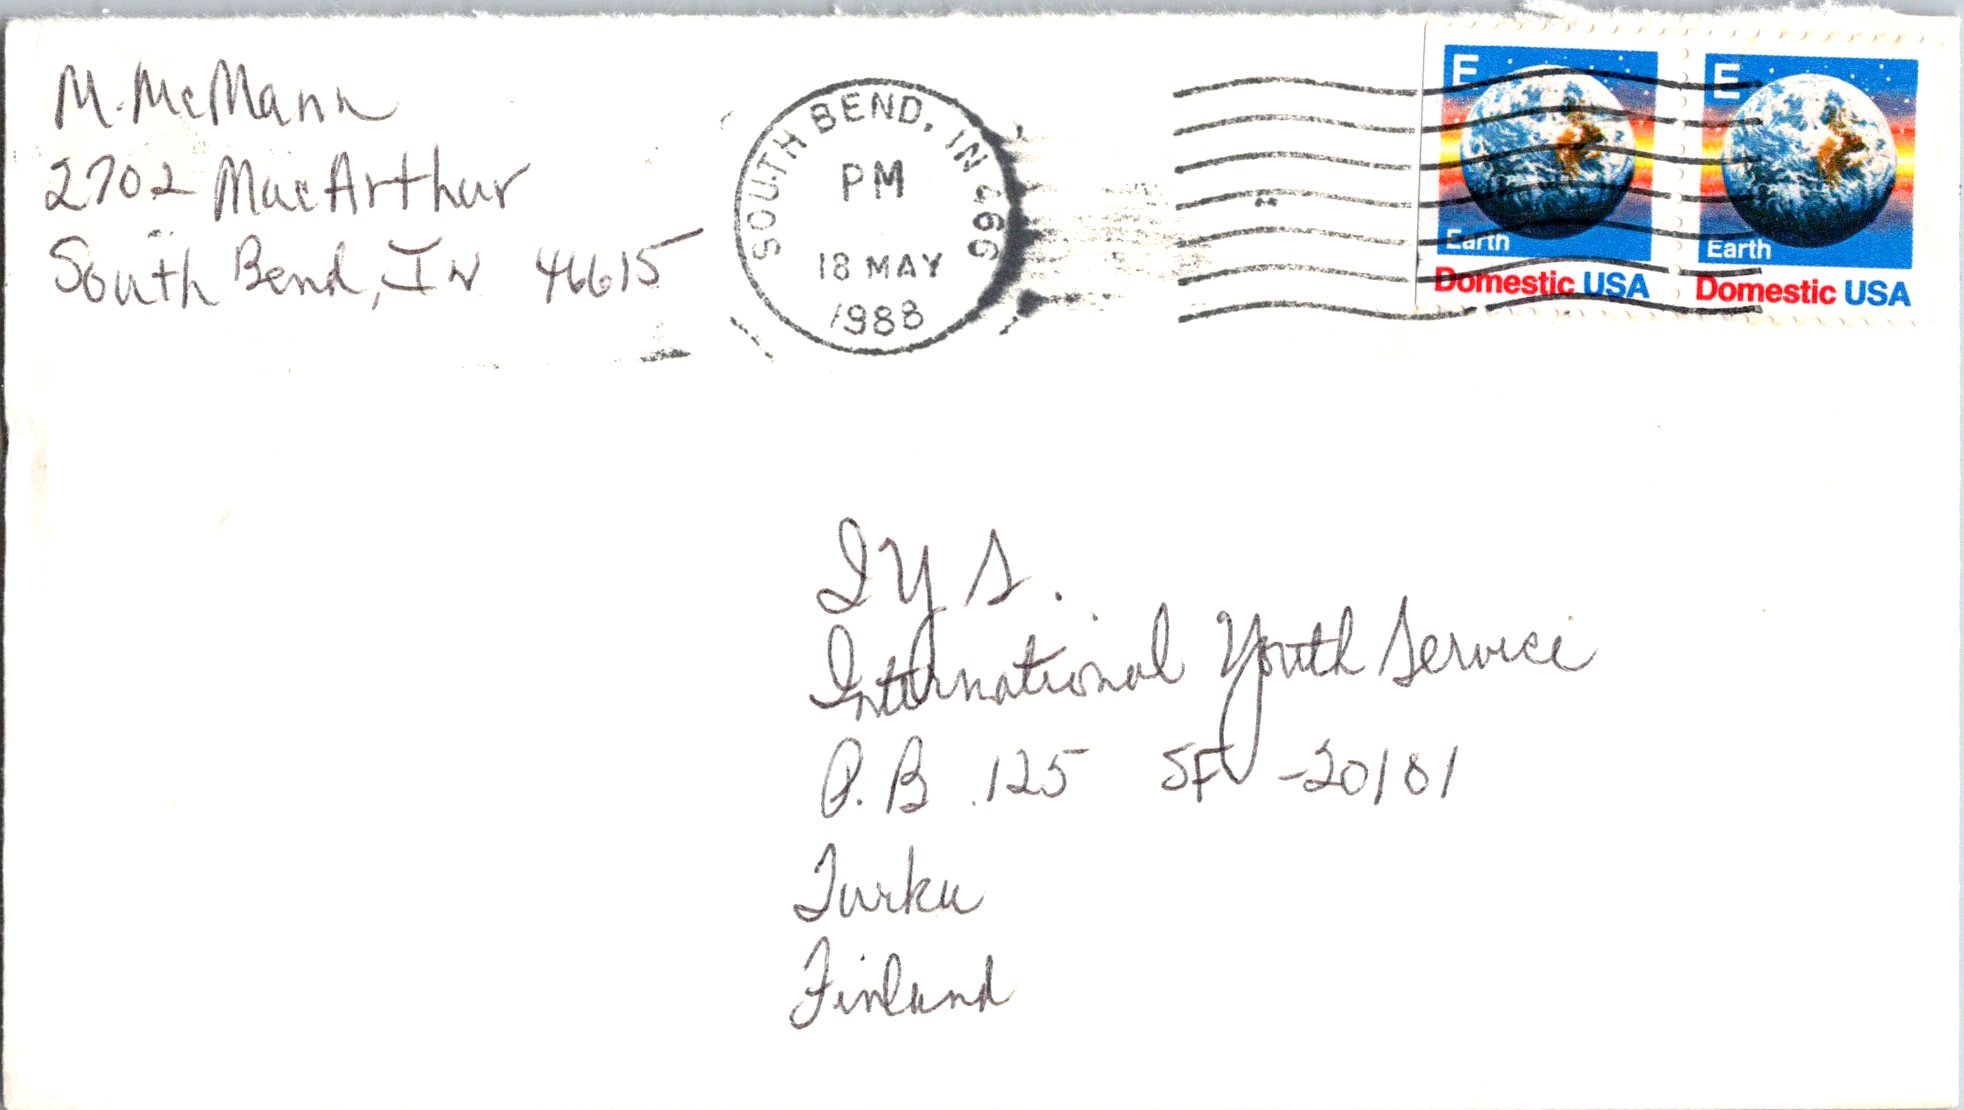 M. McMann
2702 MacArthur
South Bend, IN 46615
SOUTH BEND, IN 466
PM
18 MAY
1988
E
Earth
Domestic USA
E
Earth
Domestic USA
IYS.
International Youth Service
P.B. 125 SF -20101
Turku
Finland